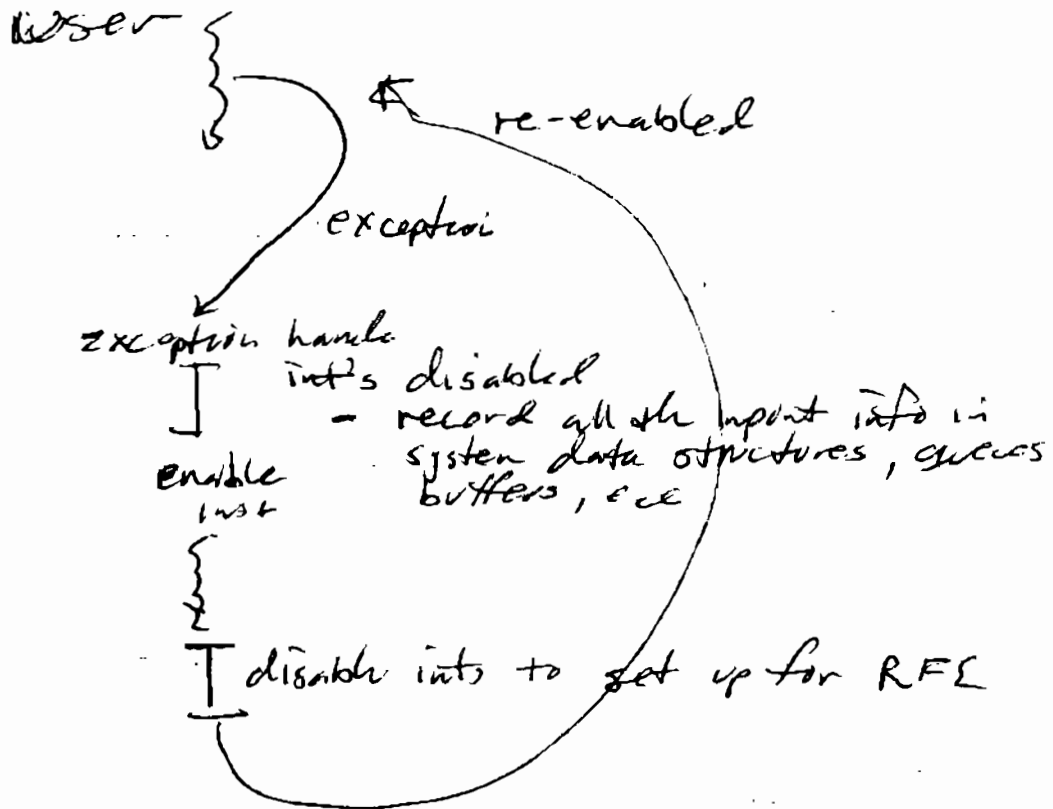 user
re-enabled
exception
exception handler
int's disabled
- record all the input info in
system data structures, queues
buffers, etc
enable
inst
disable ints to set up for RFE